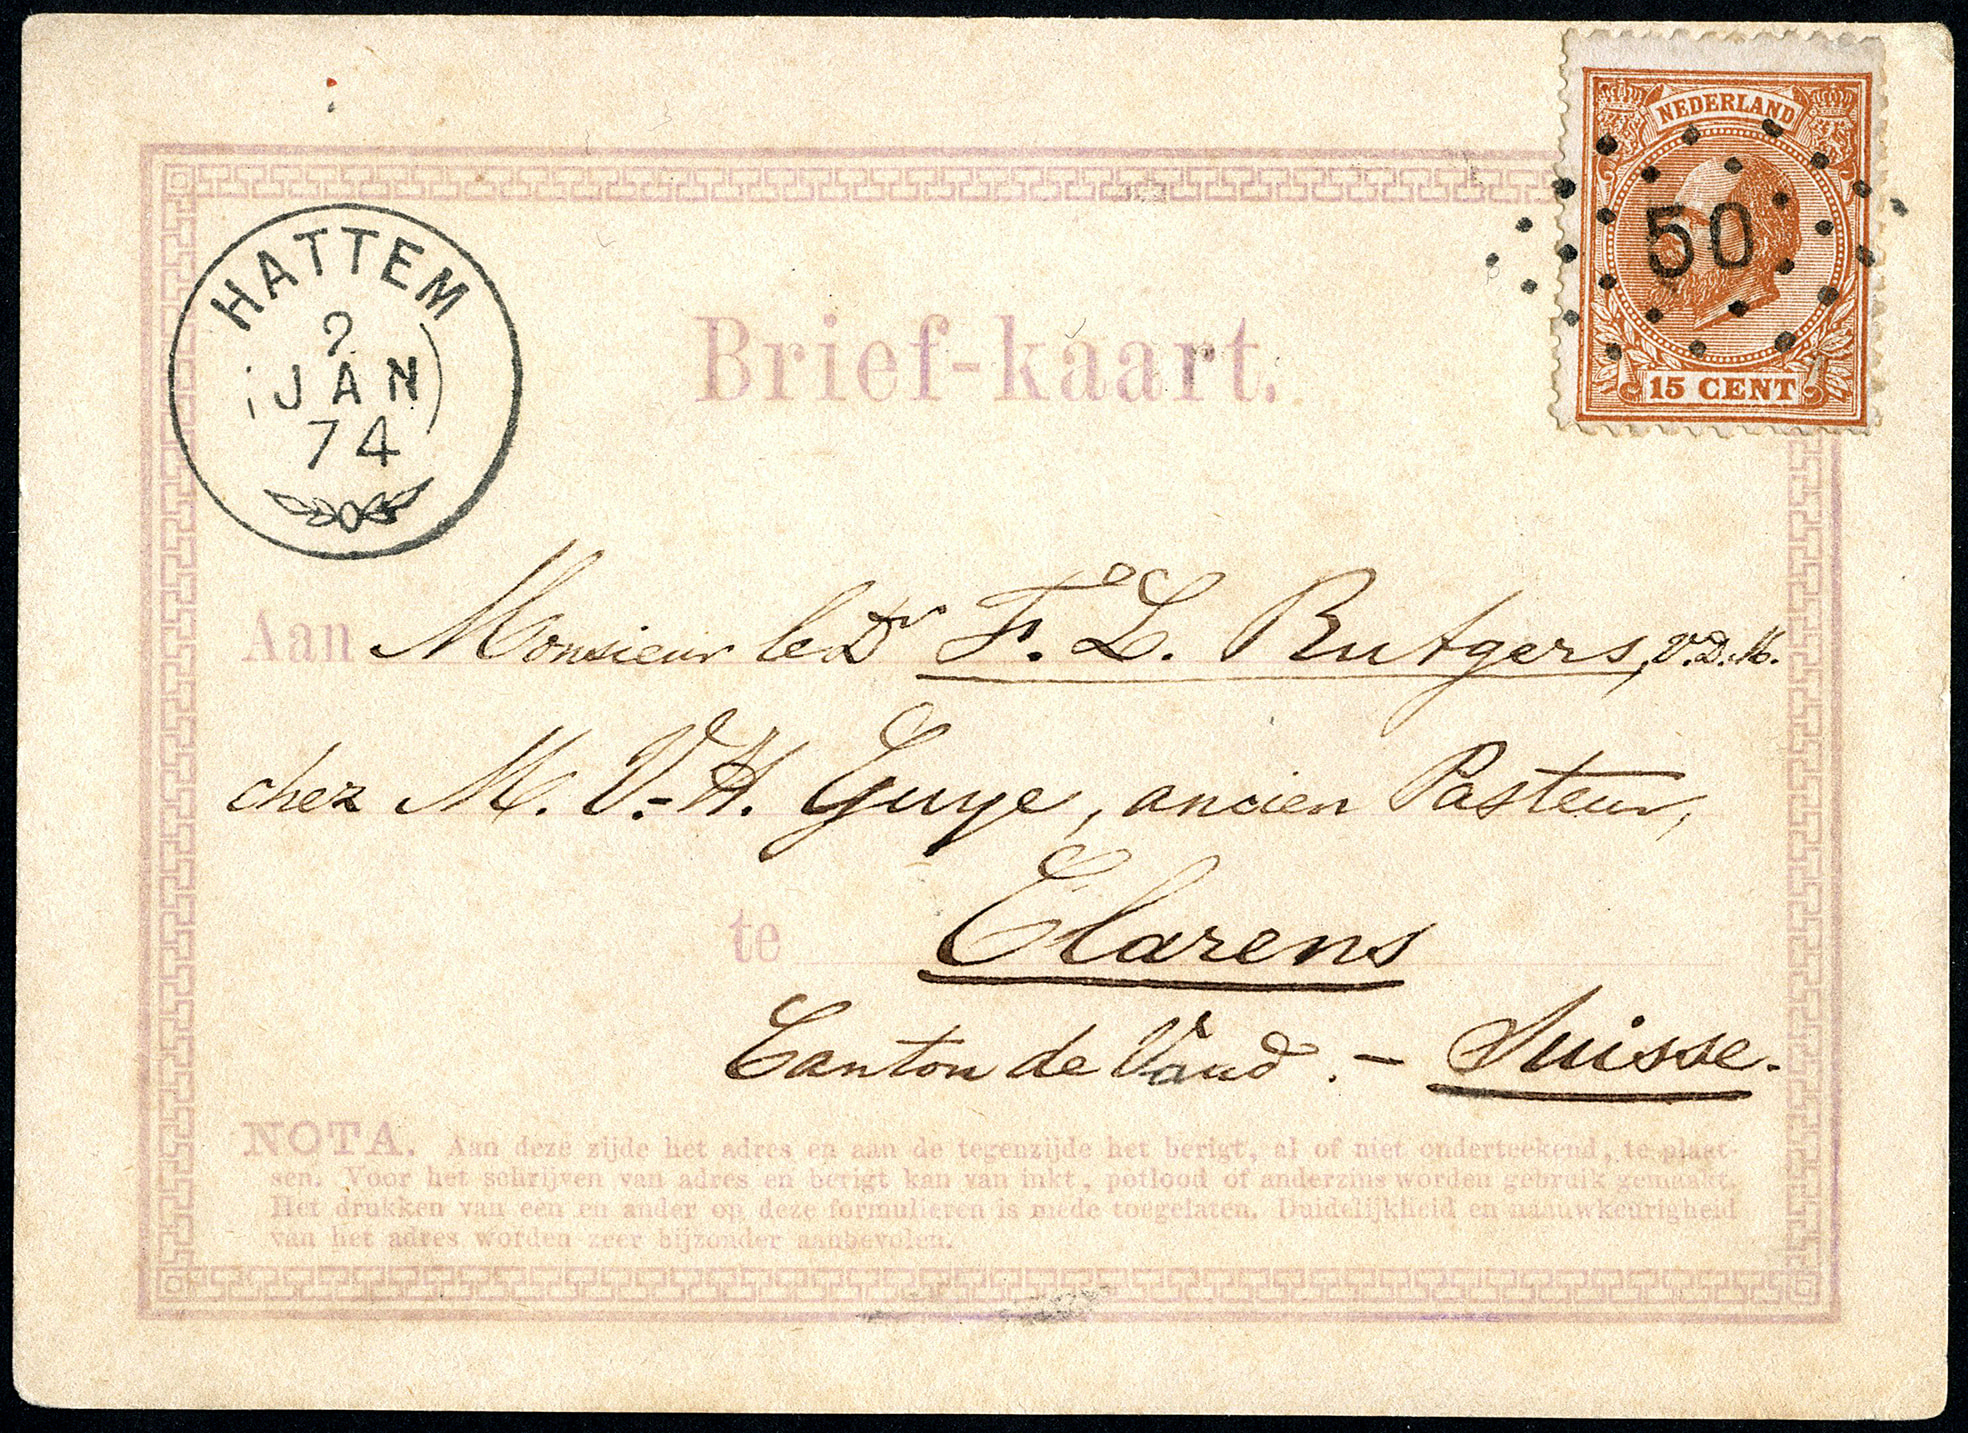 NEDERLAND
50
15 CENT
HATTEM
9
JAN
74
Brief-kaart.
Aan Monsieur le Dr F. L. Rutgers, V.D.M.
chez M. V.-H. Guye, ancien Pasteur,
te Clarens
Canton de Vaud. — Suisse.
NOTA. Aan deze zijde het adres en aan de tegenzijde het berigt, al of niet onderteekend, te plaat-
sen. Voor het schrijven van adres en berigt kan van inkt, potlood of anderzins worden gebruik gemaakt.
Het drukken van een en ander op deze formulieren is mede toegelaten. Duidelijkheid en naauwkeurigheid
van het adres worden zeer bijzonder aanbevolen.